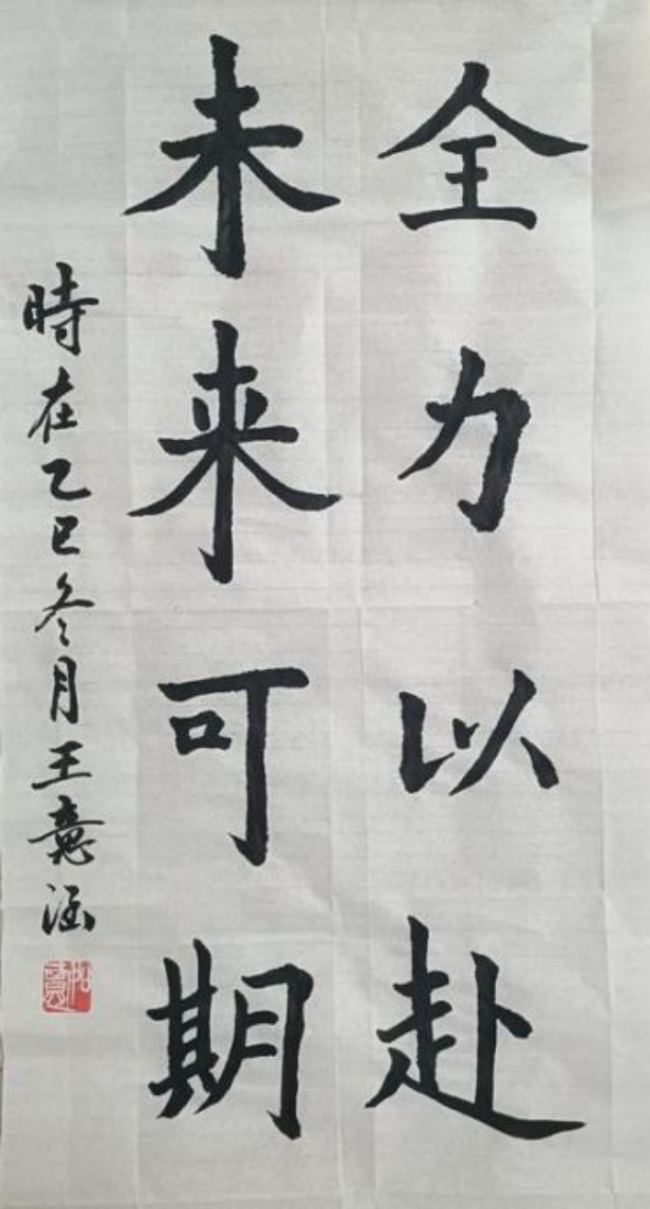 全力以赴
未来可期
時在乙巳冬月王意涵